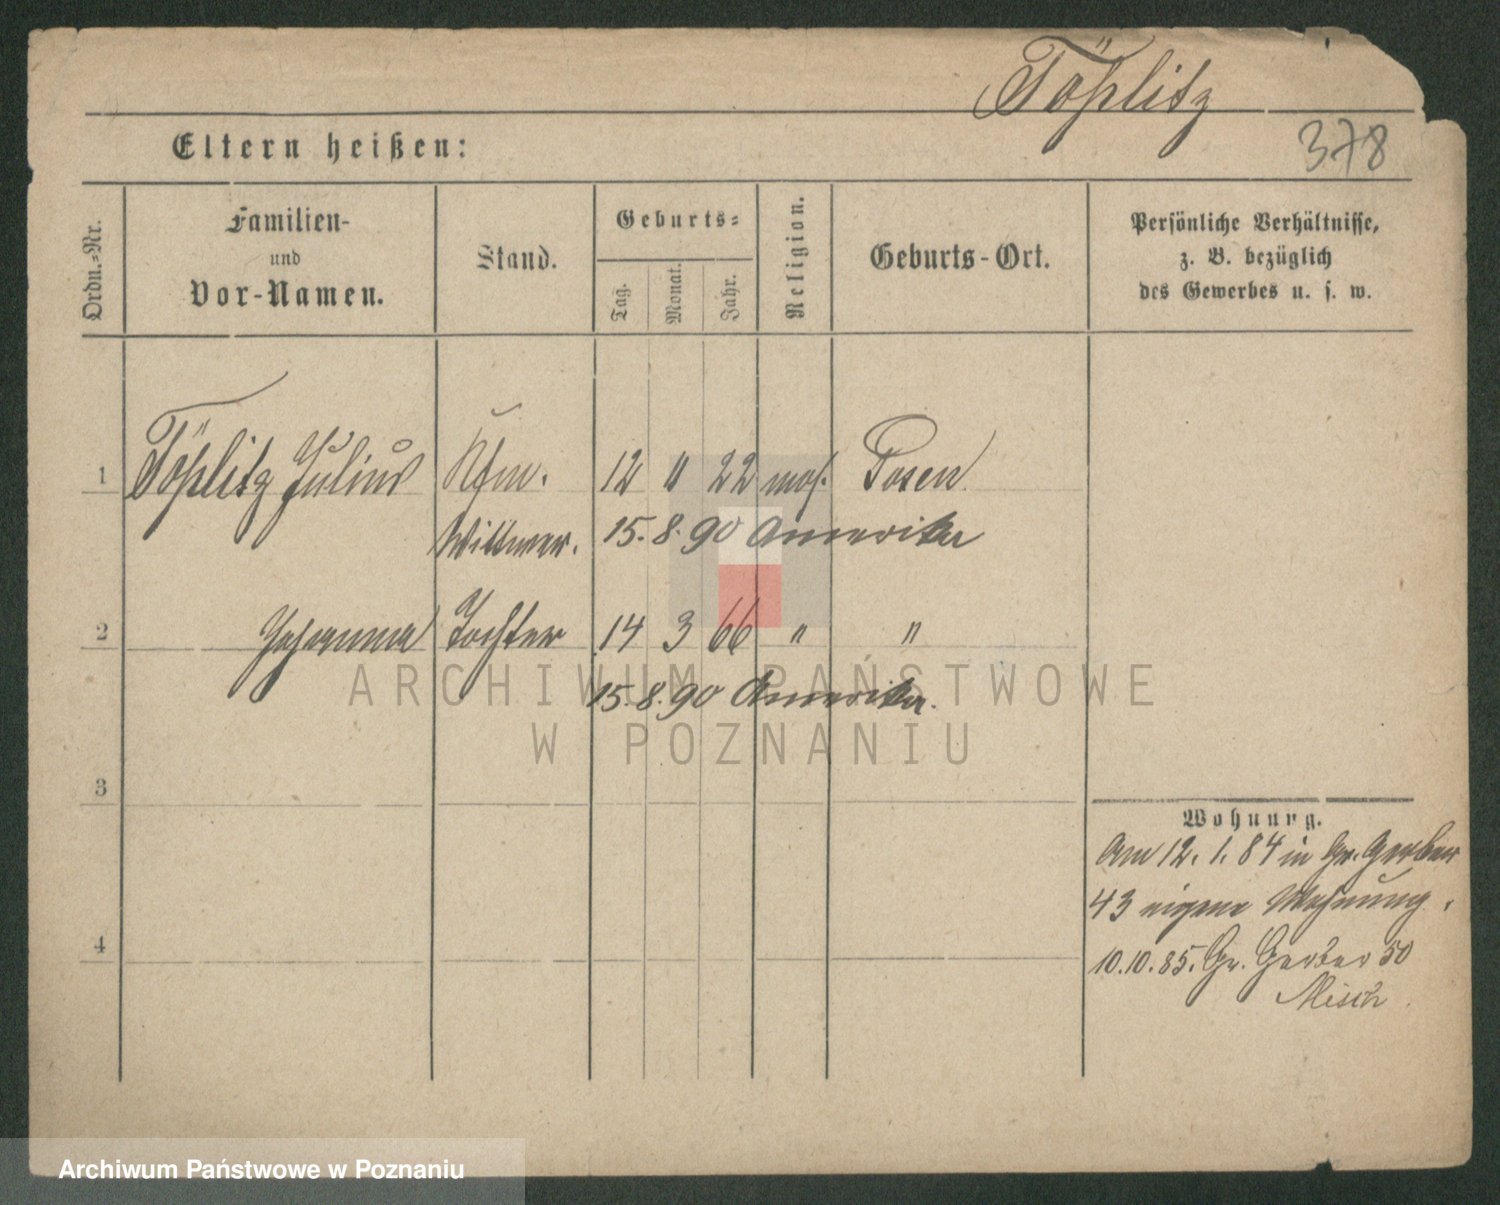 Töplitz
378
Eltern heißen:
Ordn.-Nr.
Familien-
und
Vor-Namen.
Stand.
Geburts-
Tag.
Monat.
Jahr.
Religion.
Geburts-Ort.
Persönliche Verhältnisse,
z. B. bezüglich
des Gewerbes u. s. w.
1 Töplitz Julius Kfm. 12 11 22 mos. Posen
Wittwer. 15.8.90 Amerika
2 Johanna Tochter 14 3 66 " "
15.8.90 Amerika.
3
4
Wohnung.
Am 12.1.84 in Gr. Gerber
43 eigene Wohnung.
10.10.85. Gr. Gerber 50
Misch
ARCHIWUM PAŃSTWOWE
W POZNANIU
Archiwum Państwowe w Poznaniu